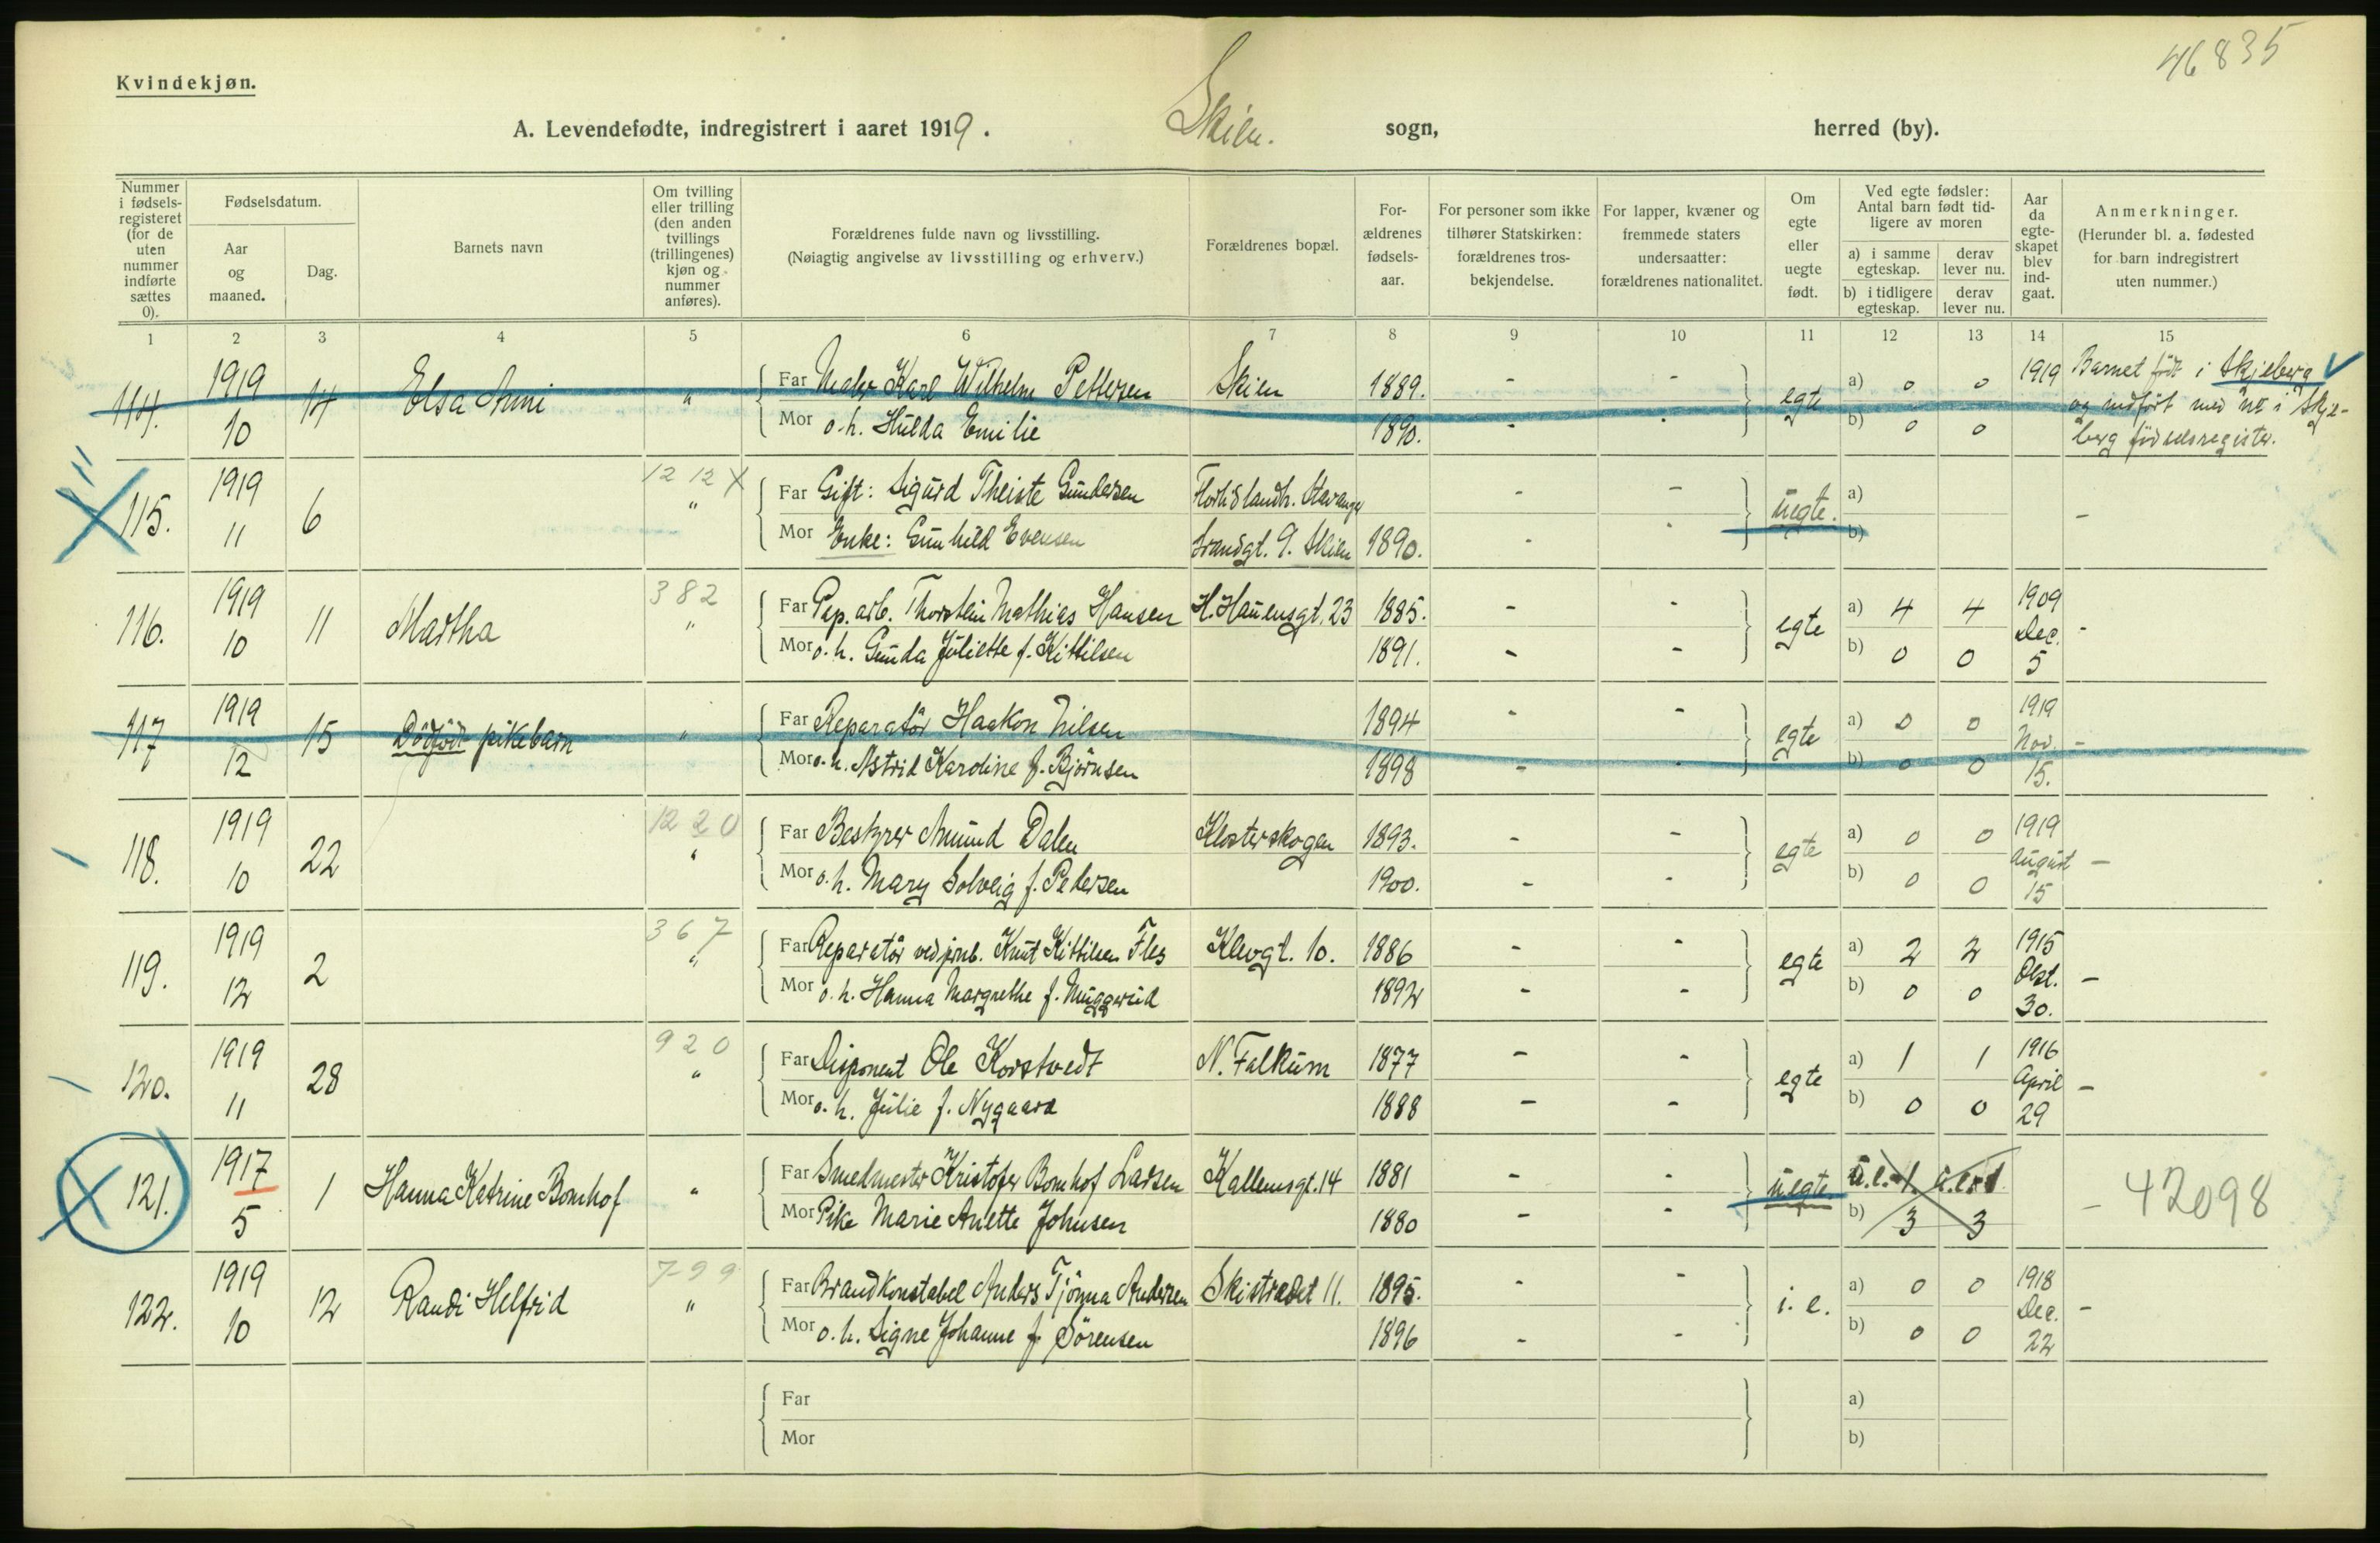 46835
Kvindekjøn.
A. Levendefødte, indregistrert i aaret 1919. Skien. sogn, herred (by).
Nummer i fødsels-registeret (for de uten nummer indførte sættes 0).
Fødselsdatum.
Aar og maaned.
Dag.
Barnets navn
Om tvilling eller trilling (den anden tvillings (trillingenes) kjøn og nummer anføres).
Forældrenes fulde navn og livsstilling.
(Nøiagtig angivelse av livsstilling og erhverv.)
Forældrenes bopæl.
For-ældrenes fødsels-aar.
For personer som ikke tilhører Statskirken: forældrenes tros-bekjendelse.
For lapper, kvæner og fremmede staters undersaatter: forældrenes nationalitet.
Om egte eller uegte født.
Ved egte fødsler: Antal barn født tid-ligere av moren
a) i samme egteskap.
derav lever nu.
b) i tidligere egteskap.
derav lever nu.
Aar da egte-skapet blev ind-gaat.
Anmerkninger.
(Herunder bl. a. fødested for barn indregistrert uten nummer.)
1 2 3 4 5 6 7 8 9 10 11 12 13 14 15
114. 1919 10 14 Elsa Anni " Far Maler Karl Wilhelm Pettersen Skien 1889. - - egte a) 0 0 1919 Barnet født i Skjeberg
Mor o. h. Hulda Emilie 1890. - - b) 0 0 og indført med nr i Skje-
berg fødselsregister.
115. 1919 11 6 12 12 X " Far Gift: Sigurd Theiste Gundersen Stavanger - - uegte. a) -
Mor Enke: Gunhild Evensen Strandgt. 9. Skien 1890. - - b)
116. 1919 10 11 Martha 382 " Far Pap. arb. Thorstein Mathias Hansen H. Hauensgt. 23 1885. - - egte a) 4 4 1909 Dec. 5 -
Mor o. h. Gunda Juliette f. Kittilsen 1891. - - b) 0 0
117 1919 12 15 Dødfødt pikebarn " Far Reparatør Haakon Nilsen 1894 - - egte a) 0 0 1919 Nov. 15. -
Mor o. h. Astrid Karoline f. Bjørnsen 1898 - - b) 0 0
118. 1919 10 22 1220 " Far Bestyrer Amund Dalen Klosterskogen 1893. - - egte a) 0 0 1919 August 15 -
Mor o. h. Mary Solveig f. Pedersen 1900. - - b) 0 0
119. 1919 12 2 367 " Far Reparatør ved jrnb. Knut Kittilsen Fles Klevgt. 10. 1886 - - egte a) 2 2 1915 Okt. 30. -
Mor o. h. Hanna Margrethe f. Muggerud 1892 - - b) 0 0
120. 1919 11 28 920 " Far Disponent Ole Korstvedt N. Falkum 1877 - - egte a) 1 1 1916 April 29 -
Mor o. h. Julie f. Nygaard 1888 - - b) 0 0
121. 1917 5 1 Hanna Katrine Bomhof " Far Smedmester Kristofer Bomhof Larsen Kallemsgt. 14 1881 - - uegte. - 42098
Mor Pike Marie Anette Johnsen 1880 - - b) 3 3
122. 1919 10 12 Randi Helfrid 799 " Far Brandkonstabel Anders Tjønna Andersen Skistredet 11. 1895. - - i. e. a) 0 0 1918 Dec. 22 -
Mor o. h. Signe Johanne f. Sørensen 1896 - - b) 0 0
Far a)
Mor b)